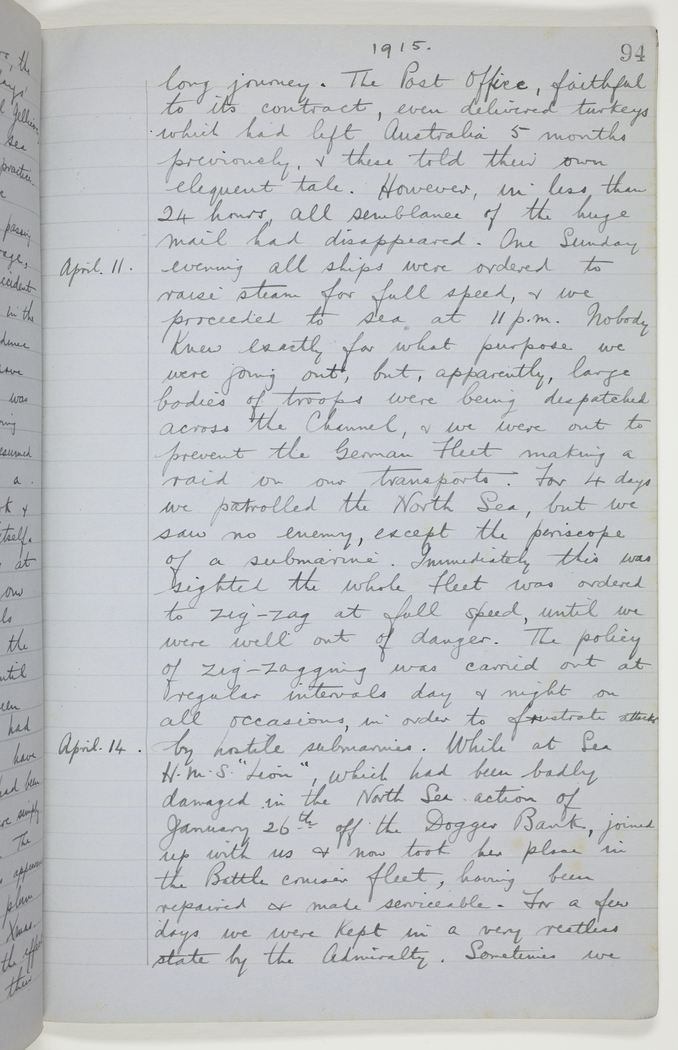 1915.
94
long journey. The Post Office, faithful
to its contract, even delivered turkeys
which had left Australia 5 months
previously, & these told their own
elequent tale. However, in less than
24 hours, all semblance of the huge
mail had disappeared. One Sunday
April. 11. evening all ships were ordered to
raise steam for full speed, & we
proceeded to sea at 11 p.m. Nobody
knew exactly for what purpose we
were going out, but, apparently, large
bodies of troops were being despatched
across the Channel, & we were out to
prevent the German Fleet making a
raid on our transports. For 4 days
we patrolled the North Sea, but we
saw no enemy, except the periscope
of a submarine. Immediately this was
sighted the whole fleet was ordered
to zig-zag at full speed, until we
were well out of danger. The policy
of zig-zagging was carried out at
regular intervals day & night on
all occasions, in order to frustrate attacks
April. 14. by hostile submarines. While at Sea
H.M.S. "Lion", which had been badly
damaged in the North Sea action of
January 26th off the Dogger Bank, joined
up with us & now took her place in
the Battle cruiser fleet, having been
repaired & made serviceable. For a few
days we were kept in a very restless
state by the Admiralty. Sometimes we